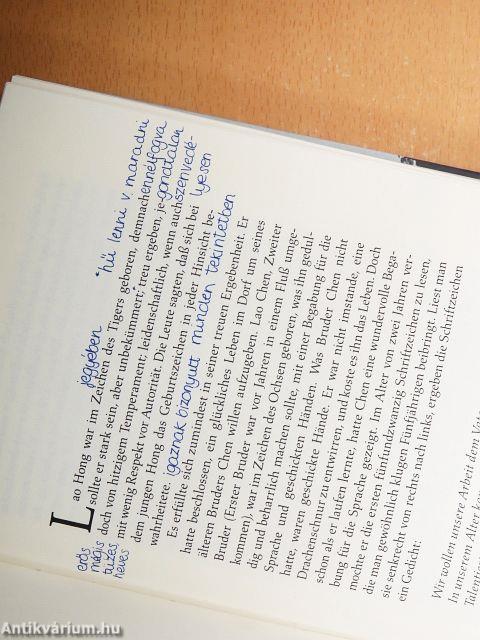 jegyében "hű lenni v. maradni
Lao Hong war im Zeichen des Tigers geboren, demnach ennélfogva
erős sollte er stark sein, aber unbekümmert; treu ergeben, je- gondtalan
doch von hitzigem Temperament; leidenschaftlich, wenn auch szenvedé-
tüzes mit wenig Respekt vor Autorität. Die Leute sagten, daß sich bei lyesen
heves dem jungen Hong das Geburtszeichen in jeder Hinsicht be-
wahrheitete. igaznak bizonyult minden tekintetben
Es erfüllte sich zumindest in seiner treuen Ergebenheit. Er
hatte beschlossen, ein glückliches Leben im Dorf um seines
älteren Bruders Chen willen aufzugeben. Lao Chen, Zweiter
Bruder (Erster Bruder war vor Jahren in einem Fluß umge-
kommen), war im Zeichen des Ochsen geboren, was ihn gedul-
dig und beharrlich machen sollte, mit einer Begabung für die
Sprache und geschickten Händen. Was Bruder Chen nicht
hatte, waren geschickte Hände. Er war nicht imstande, eine
Drachenschnur zu entwirren, und koste es ihn das Leben. Doch
schon als er laufen lernte, hatte Chen eine wundervolle Bega-
bung für die Sprache gezeigt. Im Alter von zwei Jahren ver-
mochte er die ersten fünfundzwanzig Schriftzeichen zu lesen,
die man gewöhnlich klugen Fünfjährigen beibringt. Liest man
sie senkrecht von rechts nach links, ergeben die Schriftzeichen
ein Gedicht:
Wir wollen unsere Arbeit dem
In unserem Alter
Antikvárium.hu